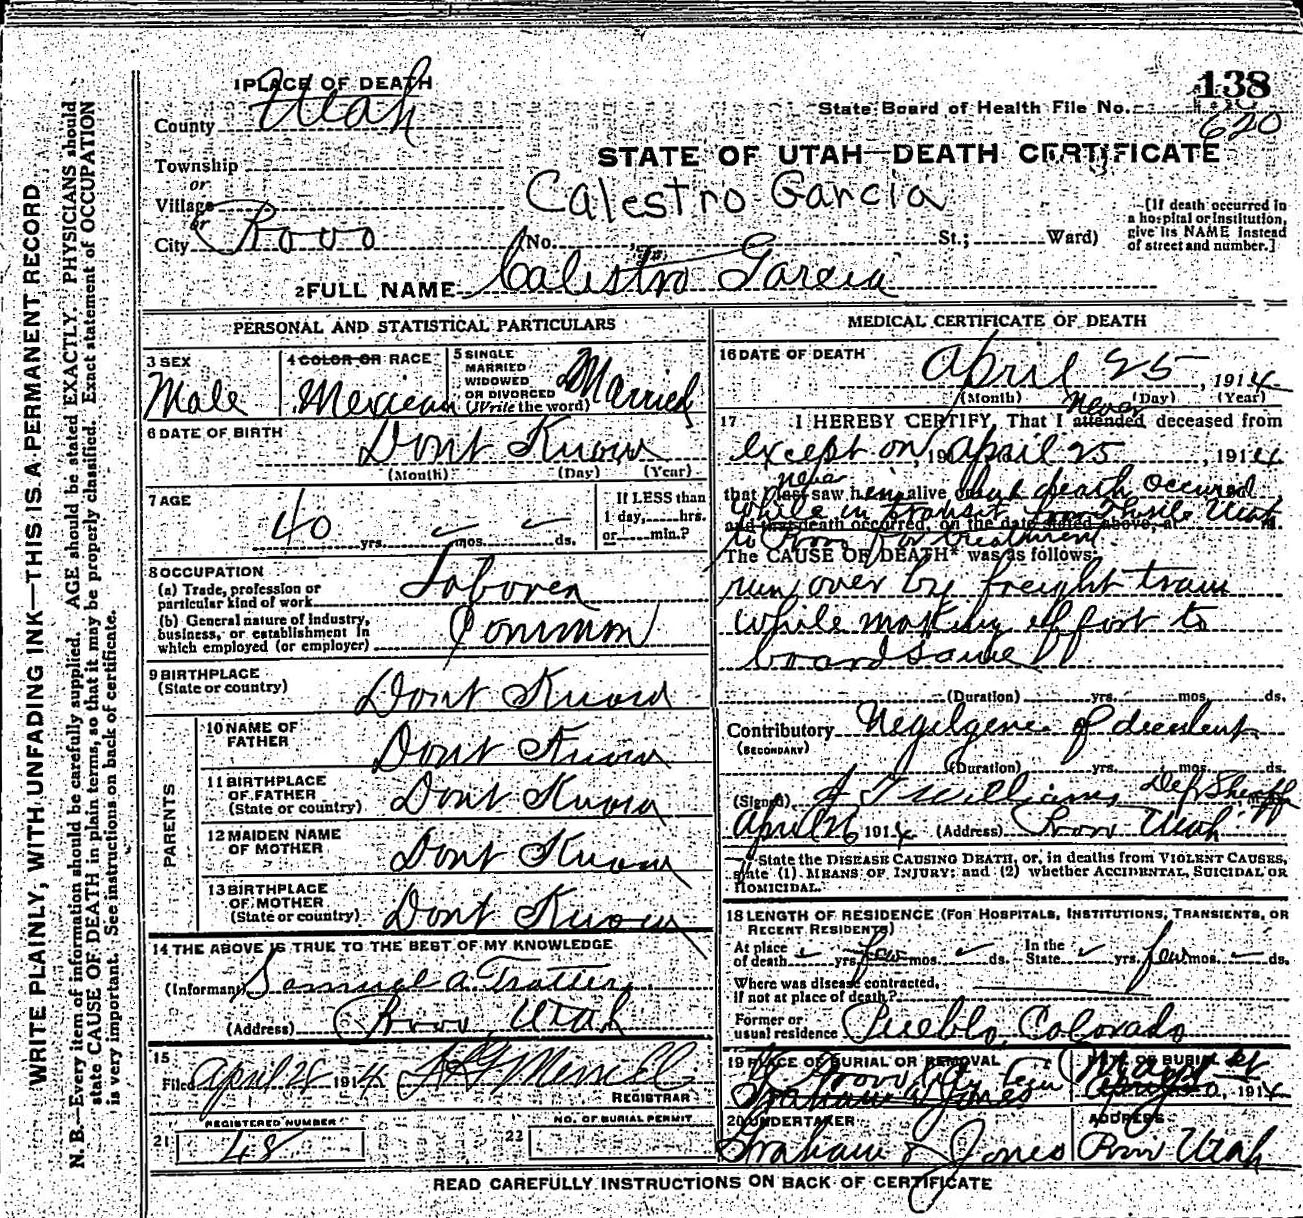 138
State Board of Health File No.
620
1 PLACE OF DEATH
County Utah
STATE OF UTAH—DEATH CERTIFICATE
Township
or
Village
or
City Provo
Calestro Garcia
(No. St.; Ward)
[If death occurred in
a hospital or institution,
give its NAME instead
of street and number.]
2 FULL NAME Calestro Garcia
PERSONAL AND STATISTICAL PARTICULARS
3 SEX
Male
4 COLOR OR RACE
Mexican
5 SINGLE
MARRIED
WIDOWED
OR DIVORCED
(Write the word)
Married
6 DATE OF BIRTH
Dont Know
(Month) (Day) (Year)
7 AGE
40 yrs. mos. ds.
If LESS than
1 day, hrs.
or min.?
8 OCCUPATION
(a) Trade, profession or
particular kind of work Laborer
(b) General nature of industry,
business, or establishment in
which employed (or employer) Common
9 BIRTHPLACE
(State or country) Dont Know
PARENTS
10 NAME OF
FATHER Dont Know
11 BIRTHPLACE
OF FATHER
(State or country) Dont Know
12 MAIDEN NAME
OF MOTHER Dont Know
13 BIRTHPLACE
OF MOTHER
(State or country) Dont Know
14 THE ABOVE IS TRUE TO THE BEST OF MY KNOWLEDGE
(Informant) Samuel A
(Address) Provo, Utah
15
Filed April 28 1914
REGISTRAR
REGISTERED NUMBER
21 48
NO. OF BURIAL PERMIT
22
MEDICAL CERTIFICATE OF DEATH
16 DATE OF DEATH
April 25, 1914
(Month) (Day) (Year)
never
17 I HEREBY CERTIFY, That I attended deceased from
except on, 191 April 25, 1914
never
that I last saw him alive on but death occured
while in transit from Utah
and that death occurred, on the date stated above, at M.
to Provo for treatment.
The CAUSE OF DEATH* was as follows:
run over by freight train
while making effort to
board same
(Duration) yrs. mos. ds.
Contributory Neglgence of decedent
(SECONDARY)
(Duration) yrs. mos. ds.
(Signed) Williams Dep Sheriff
April 26 1914 (Address) Provo Utah
* State the DISEASE CAUSING DEATH, or, in deaths from VIOLENT CAUSES,
state (1) MEANS OF INJURY; and (2) whether ACCIDENTAL, SUICIDAL OR
HOMICIDAL.
18 LENGTH OF RESIDENCE (FOR HOSPITALS, INSTITUTIONS, TRANSIENTS, OR
RECENT RESIDENTS)
At place
of death yrs. few mos. ds.
In the
State yrs. few mos. ds.
Where was disease contracted,
if not at place of death?
Former or
usual residence Pueblo, Colorado
19 PLACE OF BURIAL OR REMOVAL
Provo City Cem
Graham & Jones
DATE OF BURIAL
May 1st
April 30, 1914
20 UNDERTAKER
Graham & Jones
ADDRESS
Provo Utah
READ CAREFULLY INSTRUCTIONS ON BACK OF CERTIFICATE
WRITE PLAINLY, WITH UNFADING INK—THIS IS A PERMANENT RECORD
N. B.—Every item of information should be carefully supplied. AGE should be stated EXACTLY. PHYSICIANS should
state CAUSE OF DEATH in plain terms, so that it may be properly classified. Exact statement of OCCUPATION
is very important. See instructions on back of certificate.